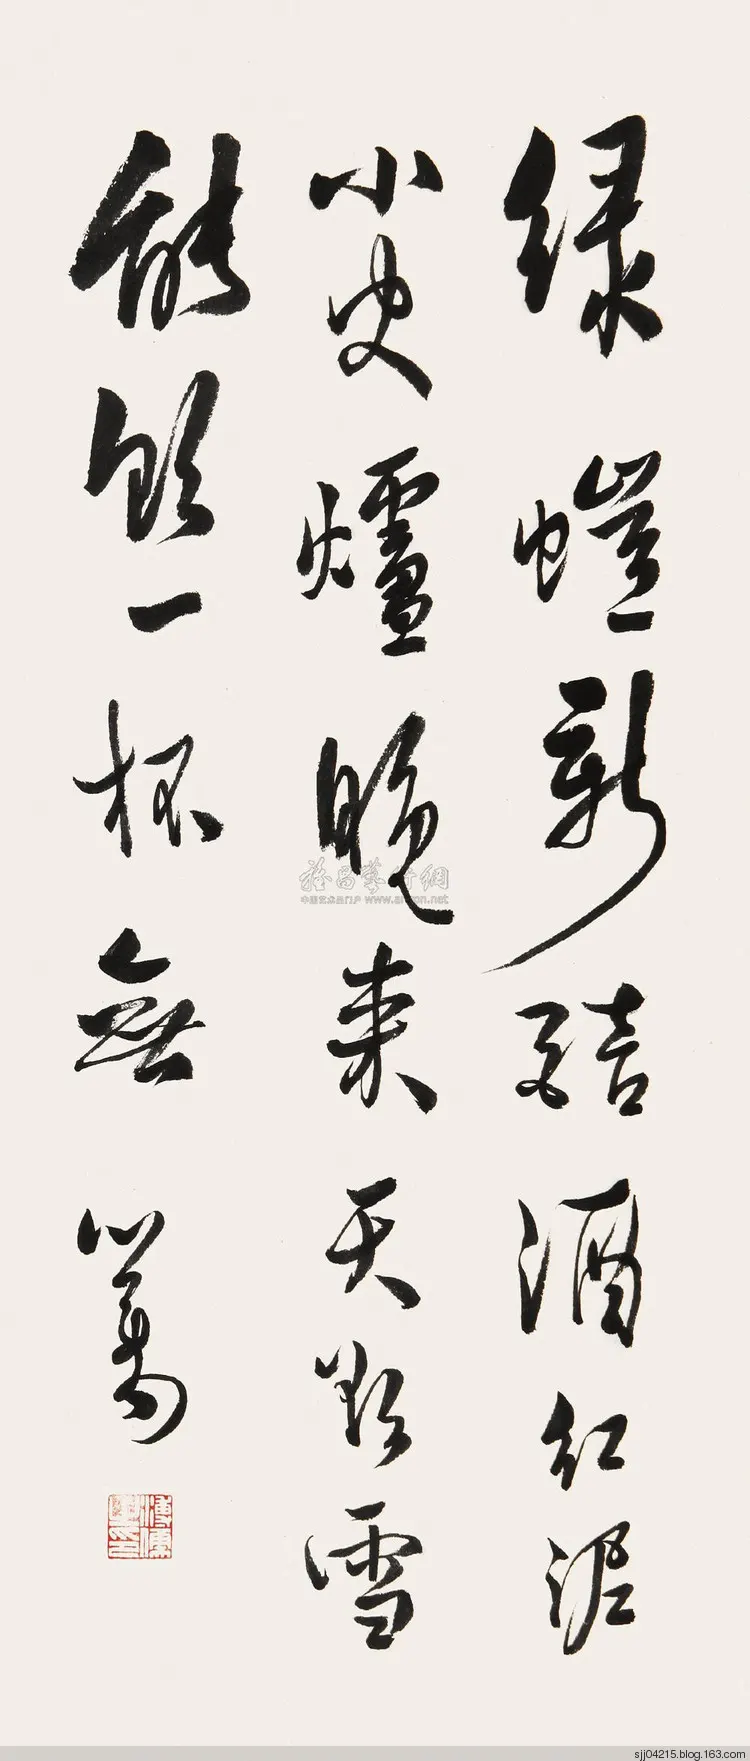 綠螘新醅酒紅泥
小火爐晚來天欲雪
能飲一杯無
心畬
雅昌藝術網
中国艺术品门户 www.artron.net
sjj04215.blog.163.com